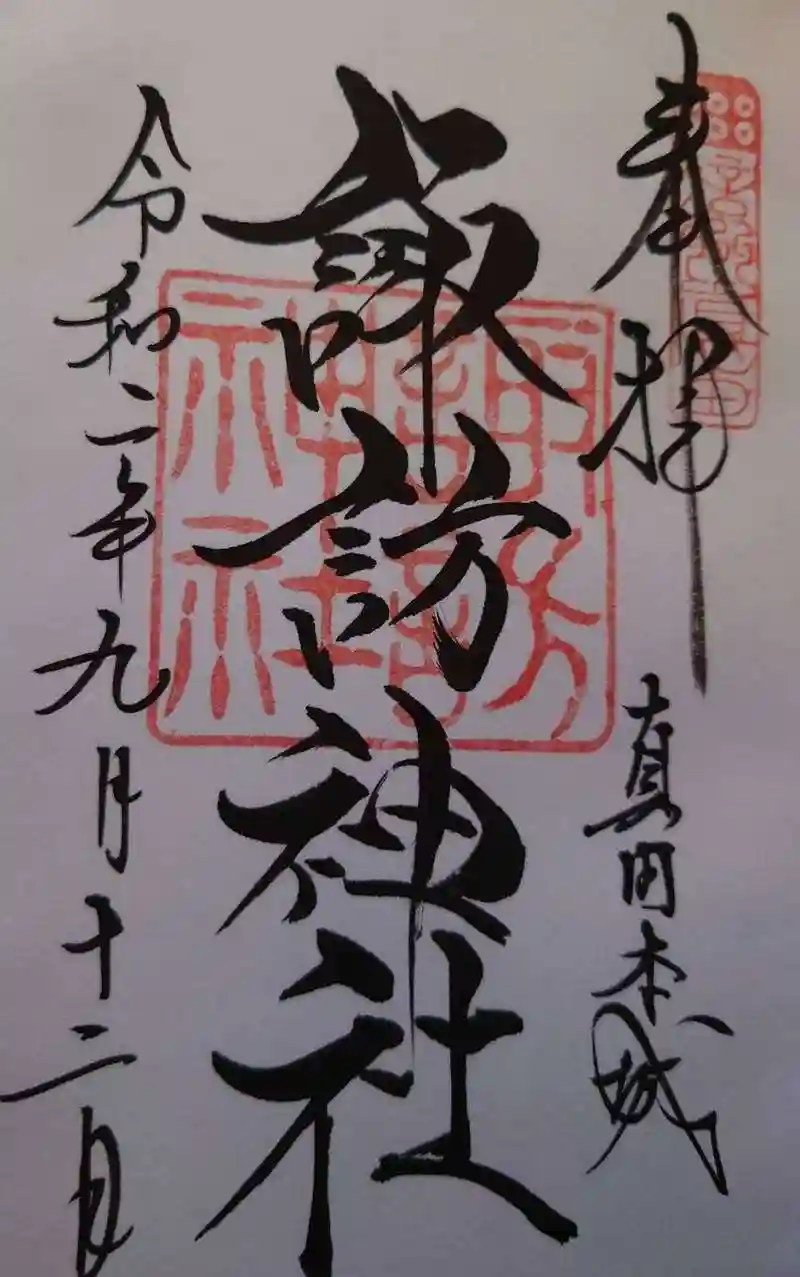 奉拝
真田本城
諏訪神社
諏訪神社
令和二年九月十二日